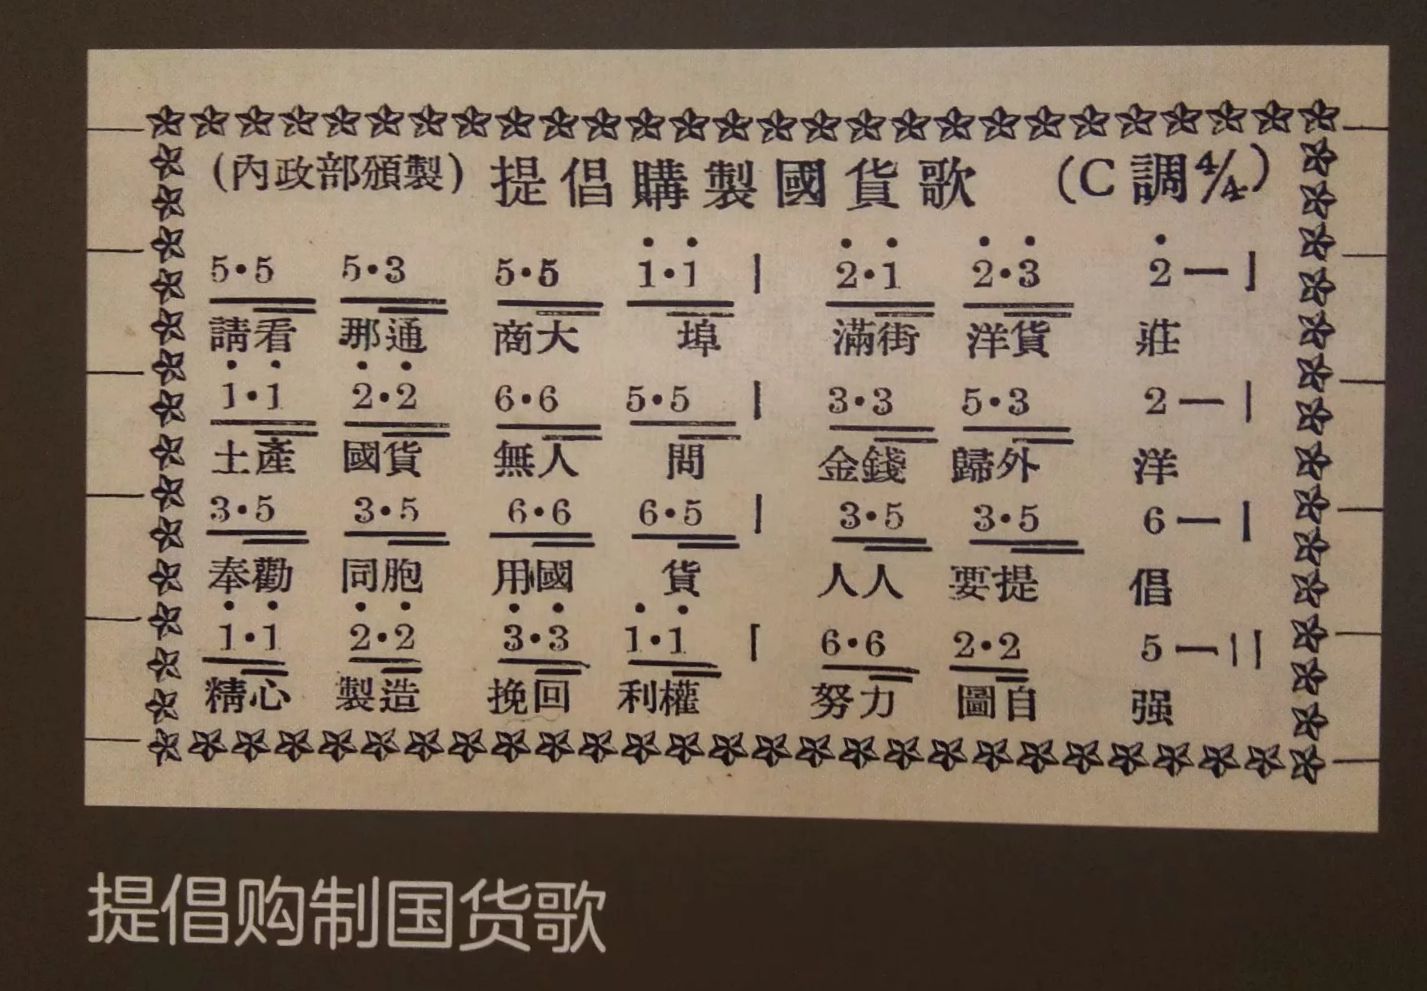 (內政部頒製) 提倡購製國貨歌 (C調4/4)
5·5 5·3 5·5 i·i | 2̇·i 2̇·3̇ 2̇— |
請看 那通 商大 埠 滿街 洋貨 莊
i·i 2̇·2̇ 6·6 5·5 | 3·3 5·3 2— |
土產 國貨 無人 問 金錢 歸外 洋
3·5 3·5 6·6 6·5 | 3·5 3·5 6— |
奉勸 同胞 用國 貨 人人 要提 倡
i·i 2̇·2̇ 3̇·3̇ i·i | 6·6 2·2 5— ||
精心 製造 挽回 利權 努力 圖自 强
提倡购制国货歌